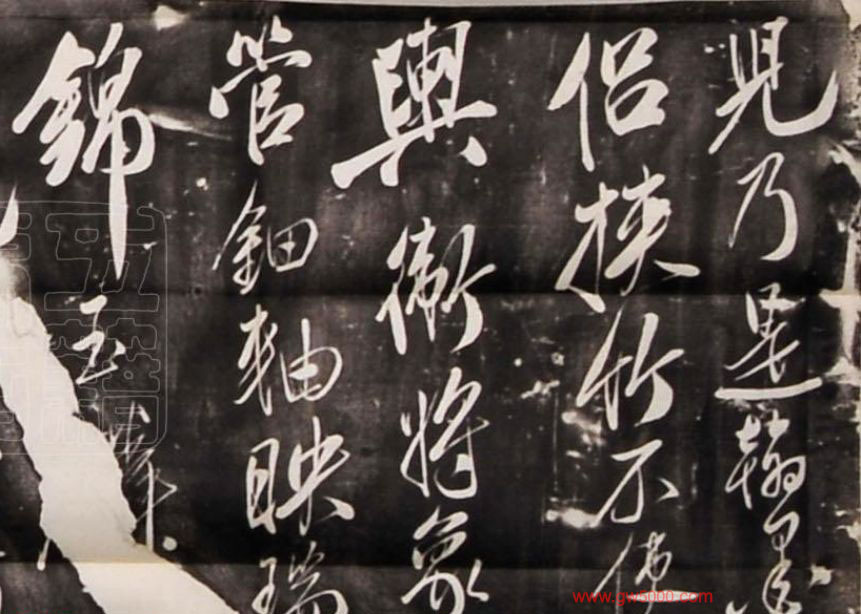 見乃翰墨
侣挾竹不
輿衛將象
管鈿軸映瑞
錦玉
www.gw5000.com